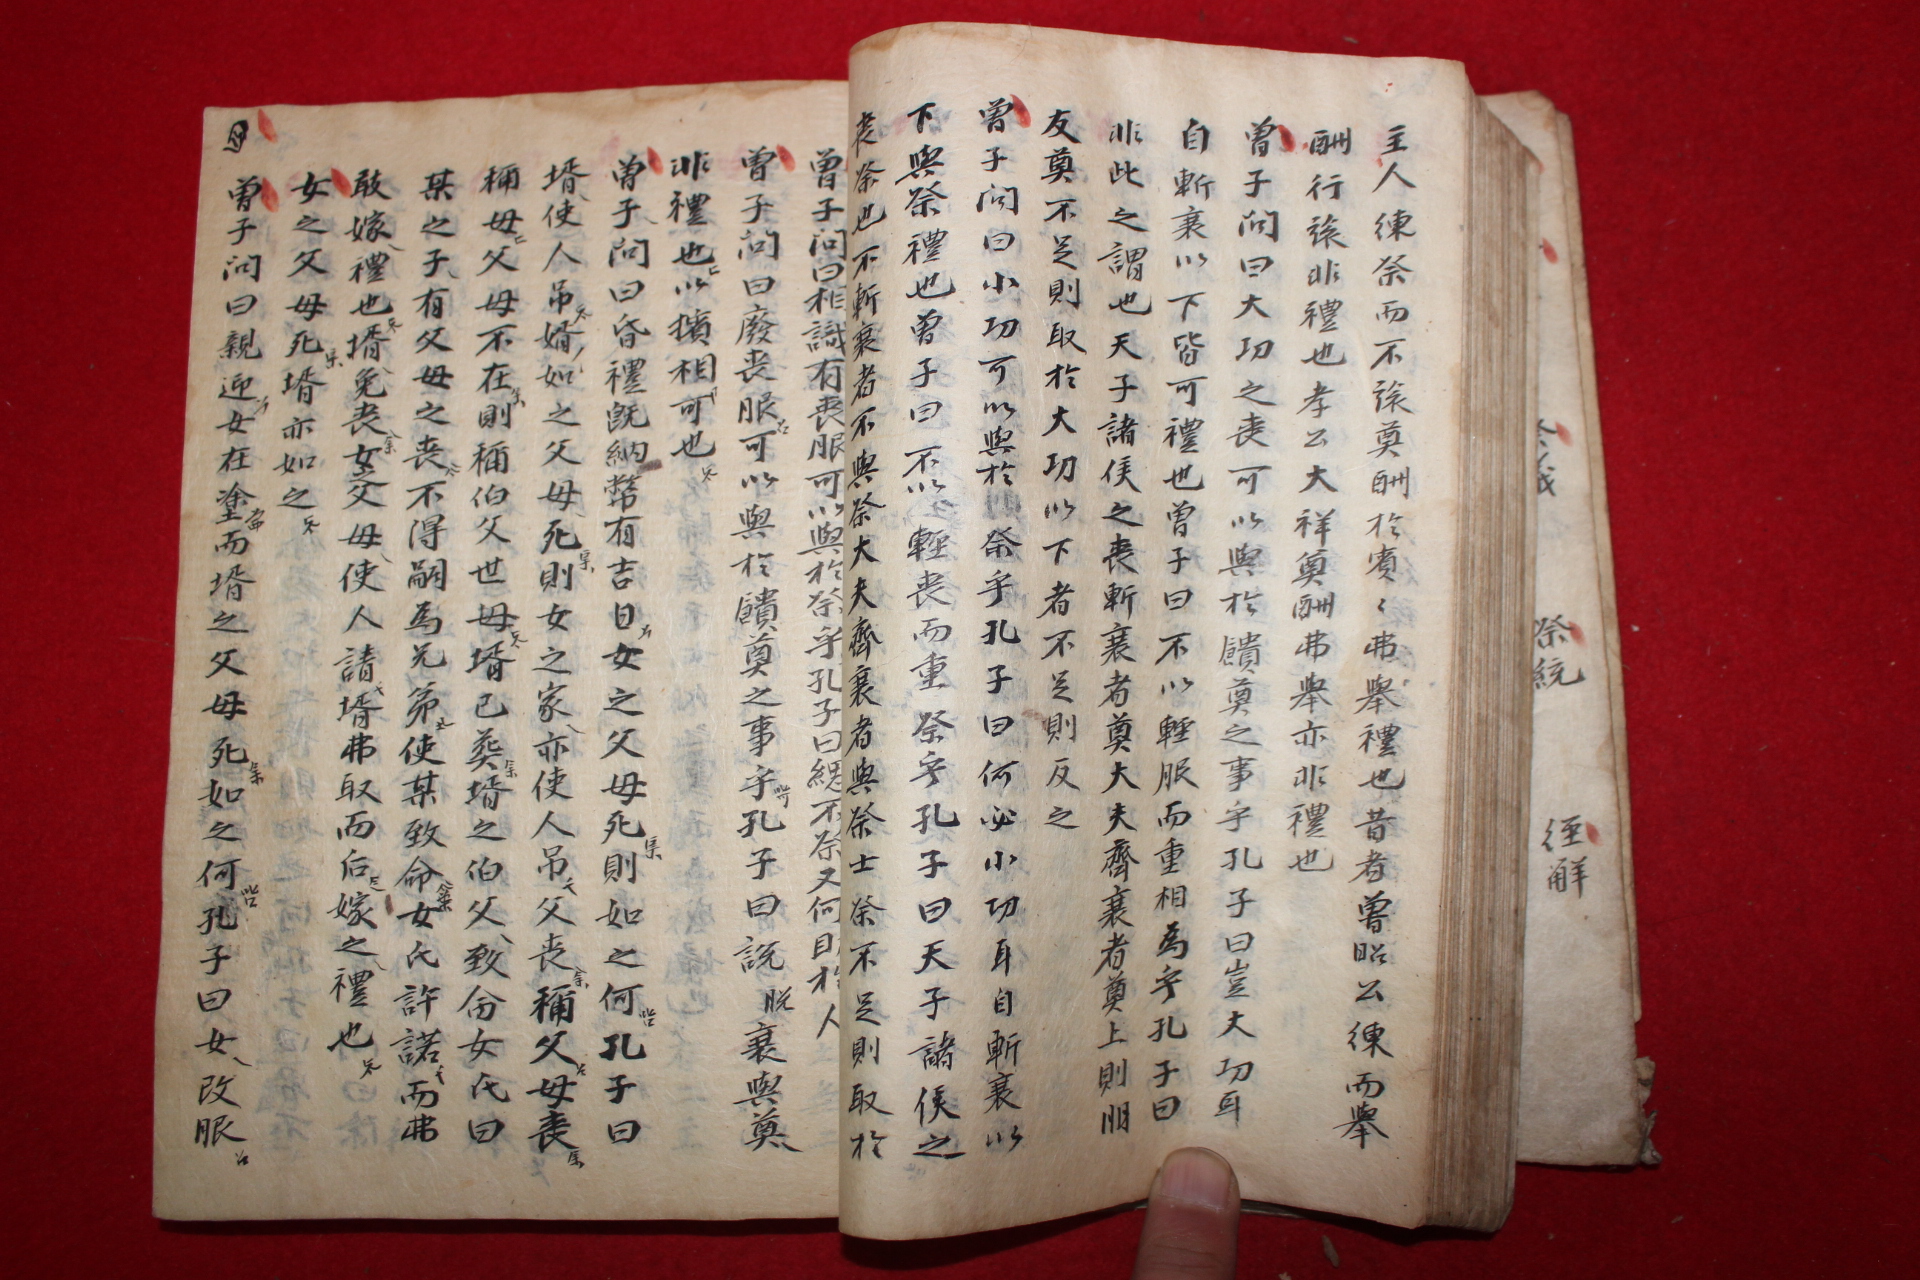 主人練祭而不旅奠酬於賓〻弗舉禮也昔者魯昭公練而舉
酬行旅非禮也孝公大祥奠酬弗舉亦非禮也
曽子問曰大功之丧可以與於饋奠之事乎孔子曰豈大功耳
自斬衰以下皆可禮也曽子曰不以輕服而重相為乎孔子曰
非此之謂也天子諸侯之丧斬衰者奠大夫齊衰者奠士則朋
友奠不足則取於大功以下者不足則反之
曽子問曰小功可以與於祭乎孔子曰何必小功耳自斬衰以
下與祭禮也曽子曰不以輕丧而重祭乎孔子曰天子諸侯之
丧祭也不斬衰者不與祭大夫齊衰者與祭士祭不足則取於
曽子問曰相識有丧服可以與於祭乎孔子曰緦不祭又何助於人
曽子問曰廢丧服可以與於饋奠之事乎孔子曰說脫衰與奠
非禮也以擯相可也
曽子問曰昏禮既納幣有吉日女之父母死則如之何孔子曰
壻使人吊婿如之父母死則女之家亦使人吊父丧稱父母丧
稱母父母不在則稱伯父世母壻已葬壻之伯父致命女氏曰
某之子有父母之丧不得嗣為兄弟使某致命女氏許諾而弗
敢嫁禮也壻免丧女之父母使人請壻弗取而后嫁之禮也
女之父母死壻亦如之
曽子問曰親迎女在塗而壻之父母死如之何孔子曰女改服
祭統
經解